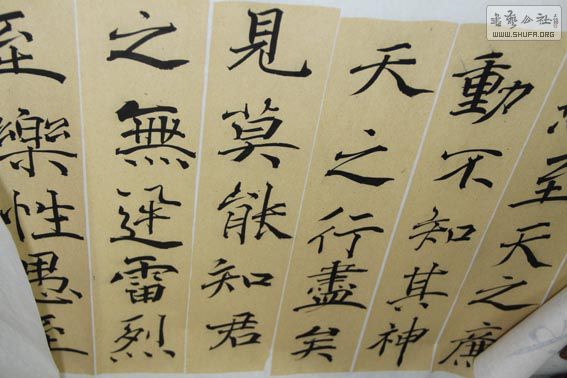 書藝公社
WWW.SHUFA.ORG
至天之廉
動不知其神
天之行盡矣
見莫能知君
之無迅雷烈
至樂性愚至